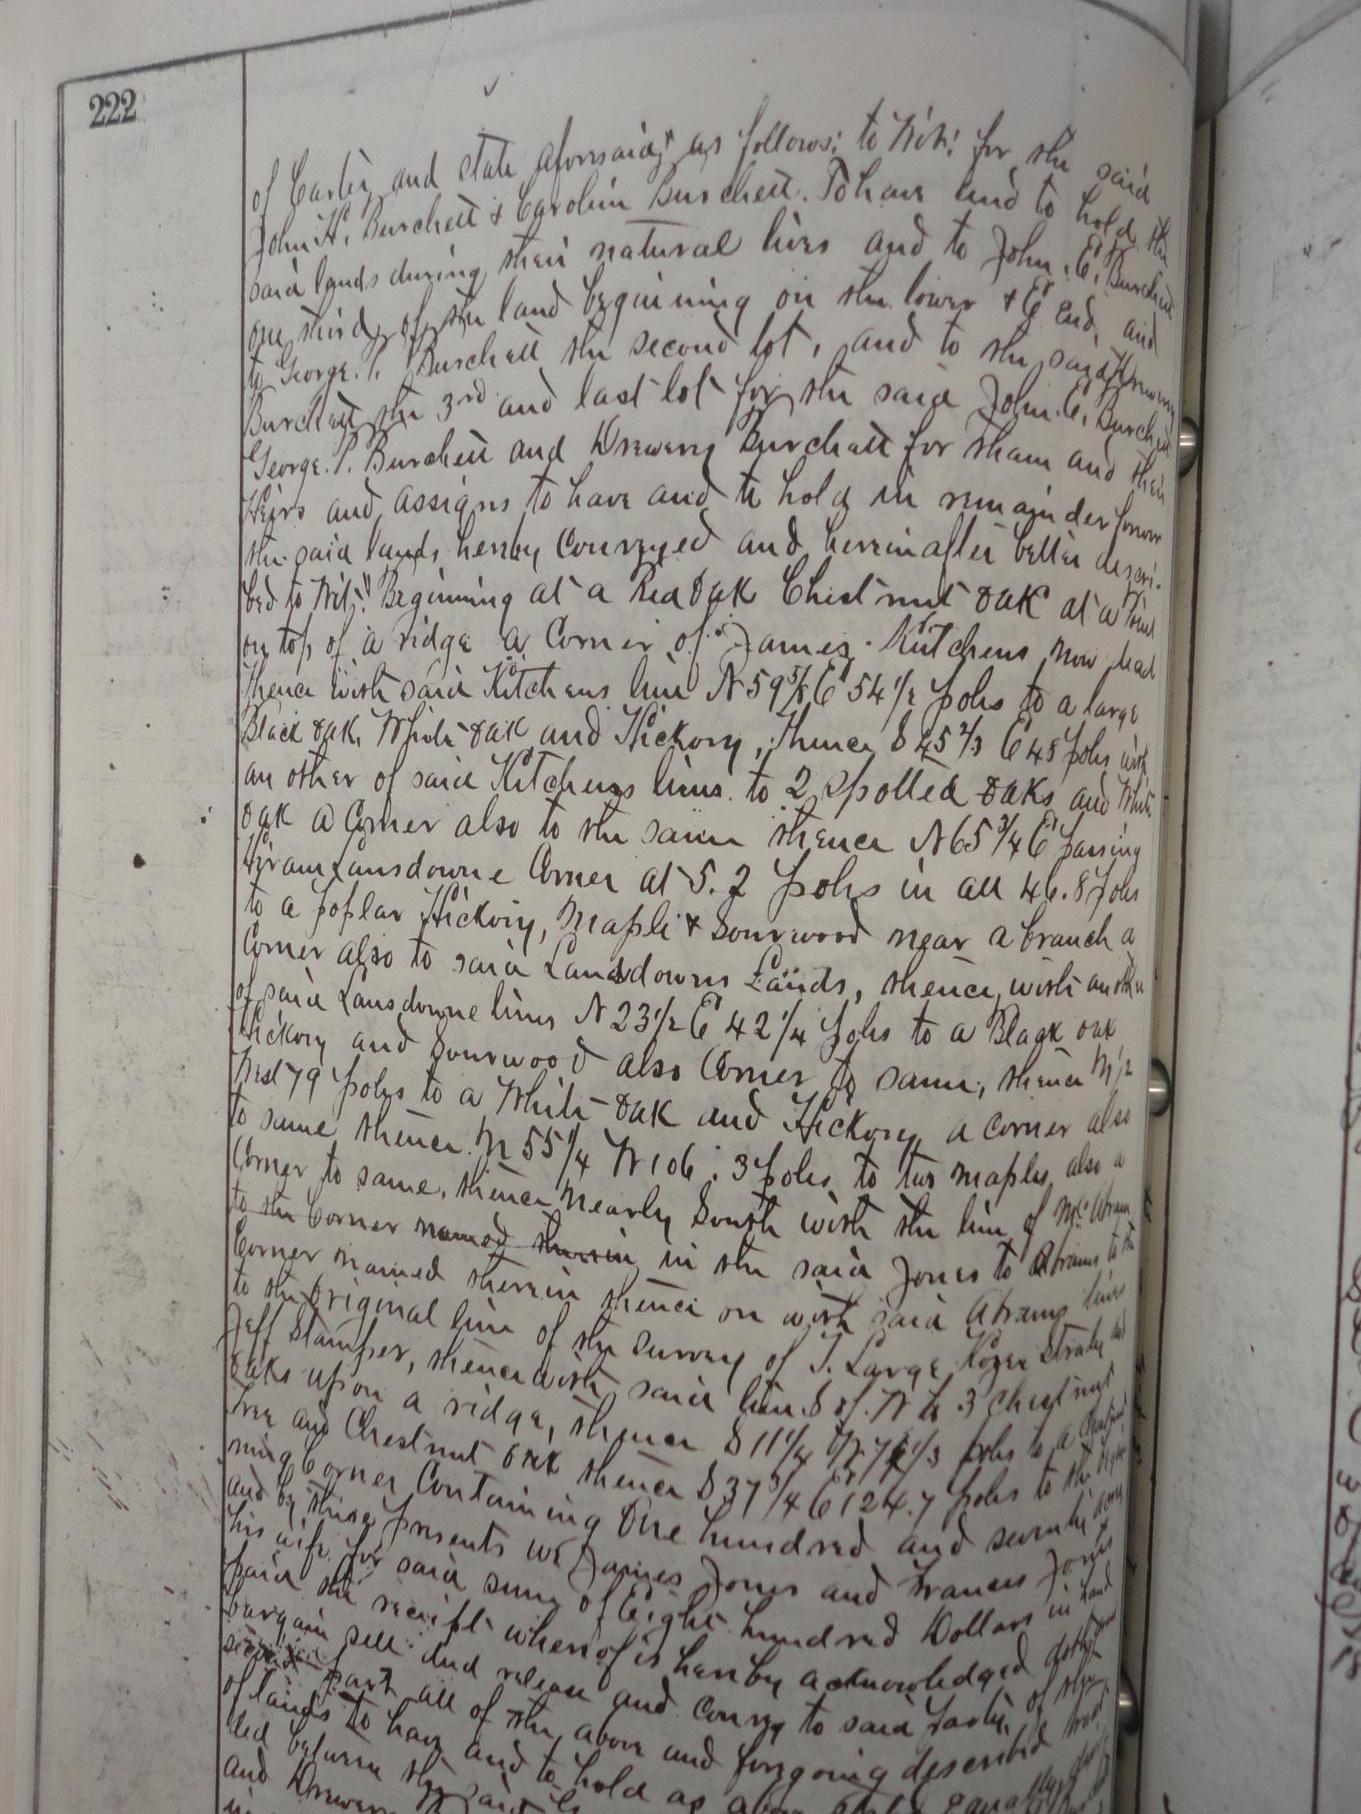 222
of Carter, and State aforesaid, as follows; to Wit; for the said
John H. Burchett & Carolin Burchett. To have and to hold the
said lands during their natural lives and to John. E. Burchett
one third, of the land beginning on the lower & E End, and
to George. P. Burchett the second lot, and to the said Drewery
Burchett the 3rd and last lot for the said John. E. Burchett
George. P. Burchett and Drewery Burchett for tham and their
Heirs and assigns to have and to hold in remainder forever
the said lands hereby Conveyed and hereinafter better descri-
bed to Wit;" Beginning at a Red Oak Chestnut Oak at a Point
on top of a ridge a Corner of James. Kitchens now dead
Thence with said Kitchens line N 59 5/8 E 54 1/2 poles to a large
Black Oak, White Oak and Hickory, Thence S 45 2/3 E 48 poles with
an other of said Kitchens lines to 2 Spotted Oaks and White
Oak a Corner also to the same thence N 65 3/4 E passing
Hiram Lansdowne Corner at 5.2 poles in all 46.8 poles
to a poplar Hickory, Maple & Sourwood near a branch a
Corner also to said Landsdowns Lands, thence, with another
of said Lansdowne lines N 23 1/2 E 42 1/4 poles to a Black oak
Hickory and Sourwood also Corner to same, thence N 12
West 79 poles to a White Oak and Hickory a corner also
to same, thence. N 55 1/4 W 106.3 poles to two maples also a
Corner to same, thence nearly South with the line of
to the Corner named therein in the said Jones to Abrams to the
Corner named therein thence on with said Abrams lines
to the Original line of the survey of T. Large Roger Stratey and
Jeff Stamper, thence with said line S of. W to 3 Chestnut
Oaks upon a ridge, thence S 11 1/4 W 1/3 poles to a Chestnut
tree and Chestnut Oak thence S 37 3/4 E 124.7 poles to the begin-
ning Corner Containing One hundred and seventy acres
and by these presents we James Jones and Frances Jones
his wife for said sum of Eight hundred Dollars in hand
paid the receipt whereof is hereby acknowledged doth
bargain sell and release and Convey to said party of the
second part all of the above and foregoing described
of lands to have and to hold as above
ded between the said
and Drewery